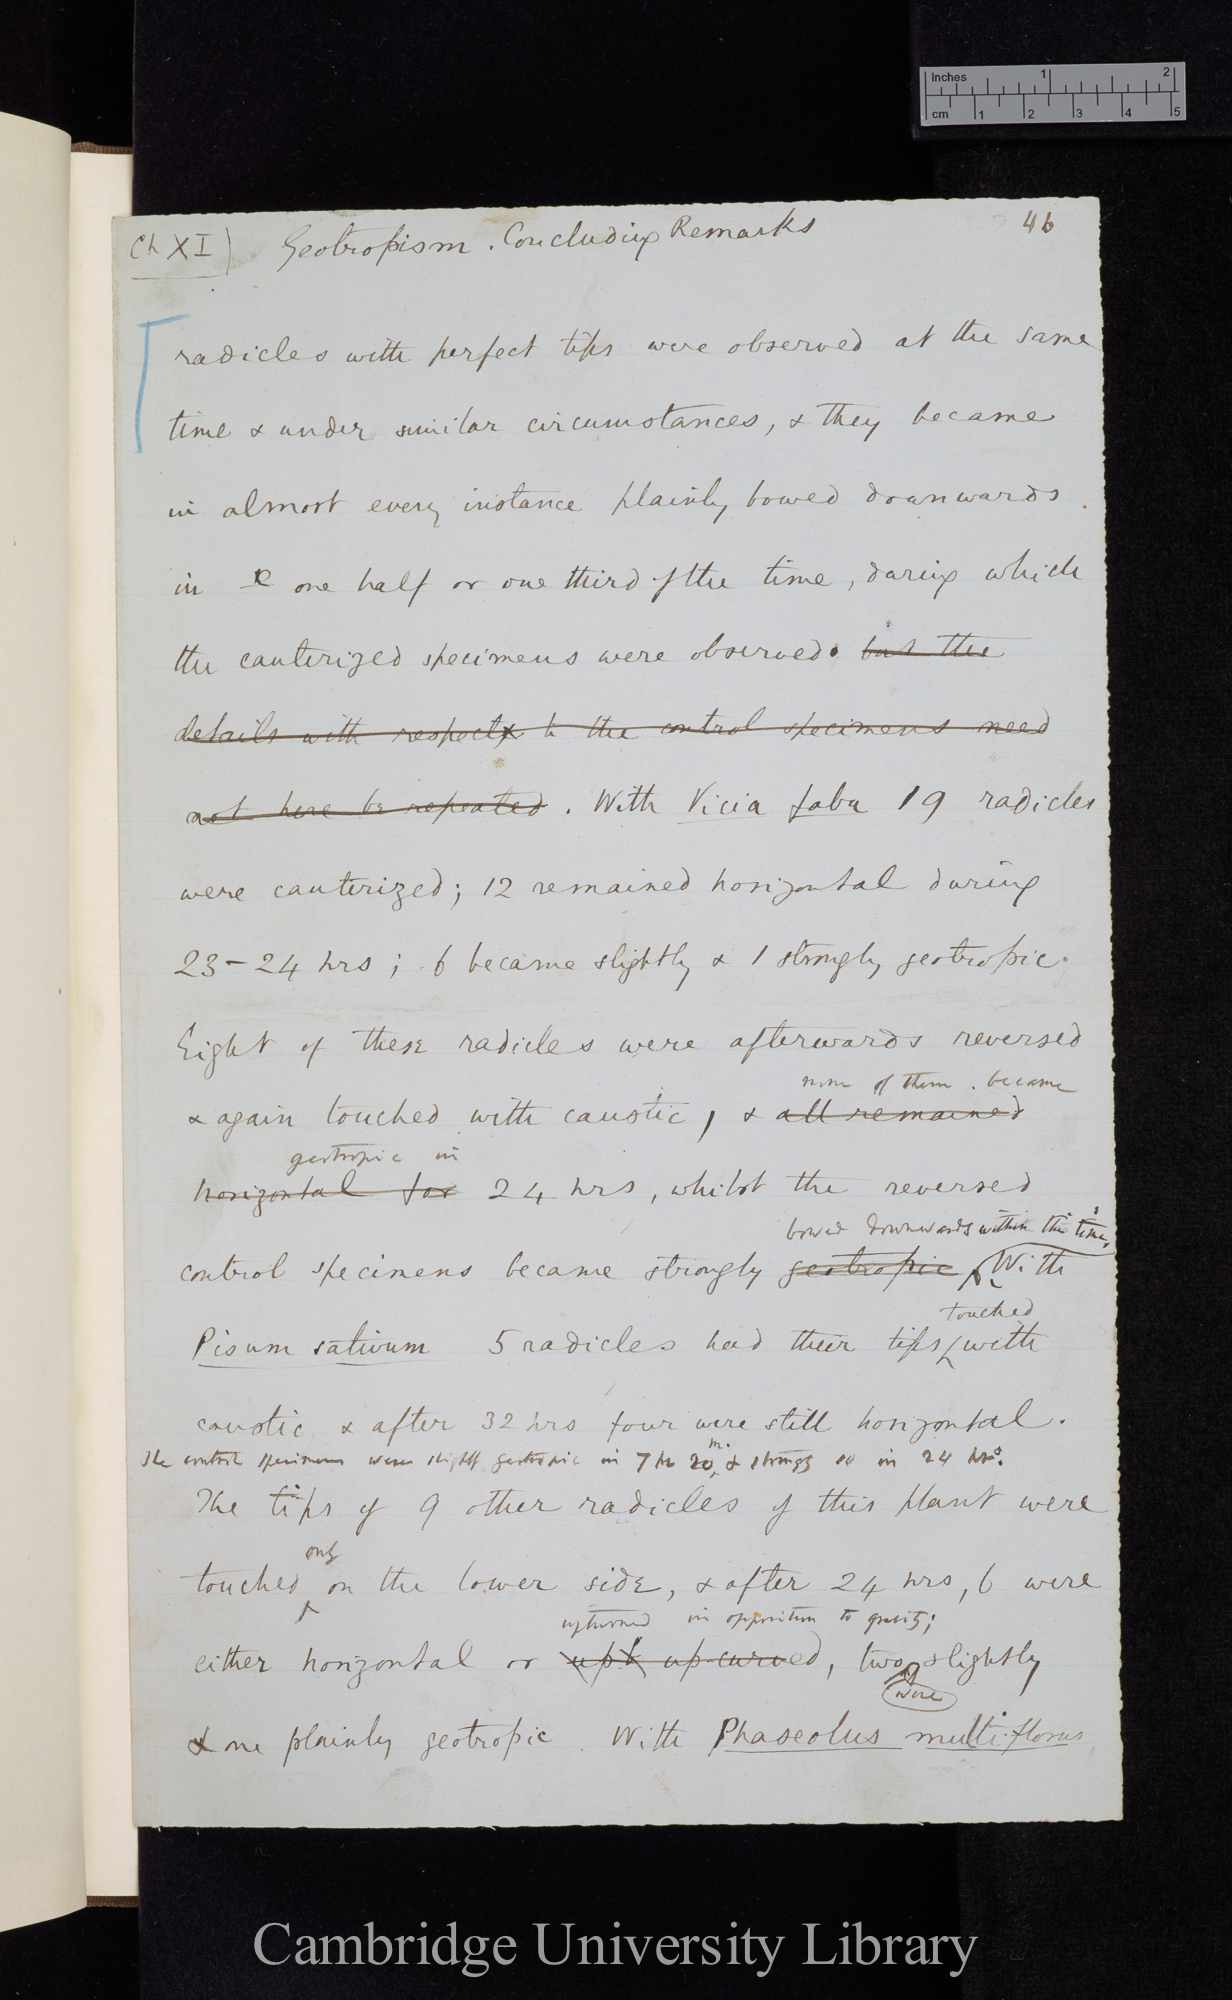 Inches 1 2
cm 1 2 3 4 5
Ch XI) Geotropism. Concluding Remarks 46
radicles with perfect tips were observed at the same
time & under similar circumstances, & they became
in almost every instance plainly bowed downwards
in one half or one third of the time, during which
the cauterized specimens were observed. but the
details with respect to the control specimens need
not here be repeated. With Vicia faba 19 radicles
were cauterized; 12 remained horizontal during
23-24 hrs; 6 became slightly & 1 strongly geotropic.
Eight of these radicles were afterwards reversed
none of them became
& again touched with caustic, & all remained
geotropic in
horizontal for 24 hrs, whilst the reversed
bowed downwards within this time,
control specimens became strongly geotropic With
touched
Pisum sativum 5 radicles had their tips with
caustic & after 32 hrs four were still horizontal.
The control specimens were slightly geotropic in 7 hr 20 m. & strongly so in 24 hrs.
The tips of 9 other radicles of this plant were
only
touched on the lower side, & after 24 hrs, 6 were
upturned in opposition to gravity;
either horizontal or up-curved, two slightly
were
& one plainly geotropic. With Phaseolus multiflorus
Cambridge University Library